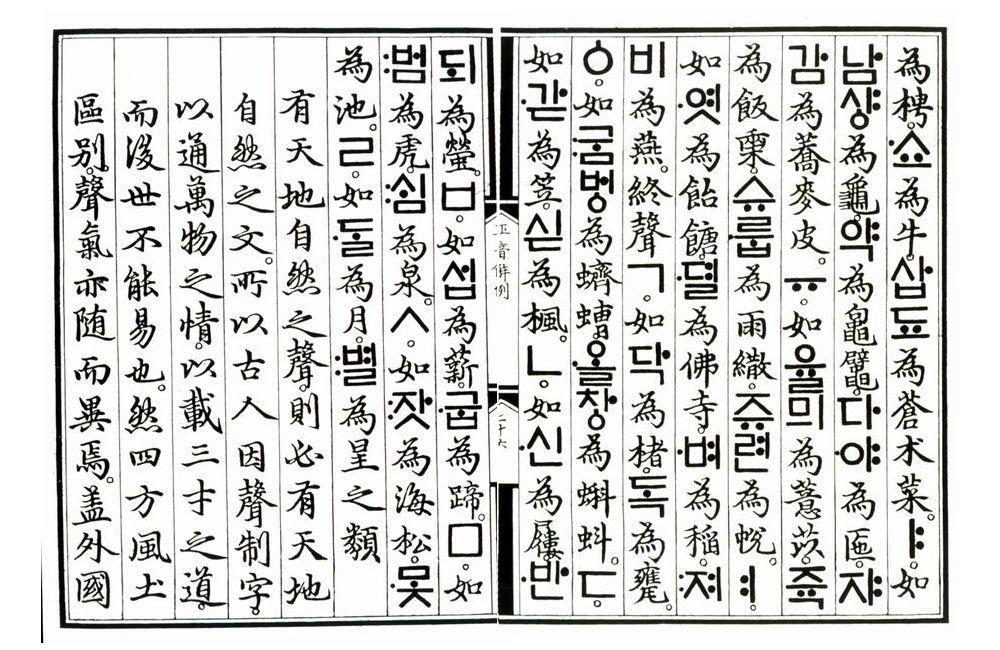 為梬。쇼為牛。삽됴為蒼朮菜。ㅑ如
남샹為龜。약為鼅鼊。다야為匜。쟈
감為蕎麥皮。ㅠ如율믜為薏苡。쥭
為飯𣖄。슈룹為雨繖。쥬련為帨。ㅕ
如엿為飴餹。뎔為佛寺。벼為稻。져
비為燕。終聲ㄱ。如닥為楮。독為甕。
ㆁ。如굼벙為蠐螬。올창為蝌蚪。ㄷ。
如갇為笠。싣為楓。ㄴ。如신為屨。반
正音解例
二十六
되為螢。ㅂ。如섭為薪。굽為蹄。ㅁ。如
범為虎。심為泉。ㅅ。如잣為海松。못
為池。ㄹ。如ᄃᆞᆯ為月。별為星之類
有天地自然之聲。則必有天地
自然之文。所以古人因聲制字。
以通萬物之情。以載三才之道。
而後世不能易也。然四方風土
區別。聲氣亦隨而異焉。盖外國